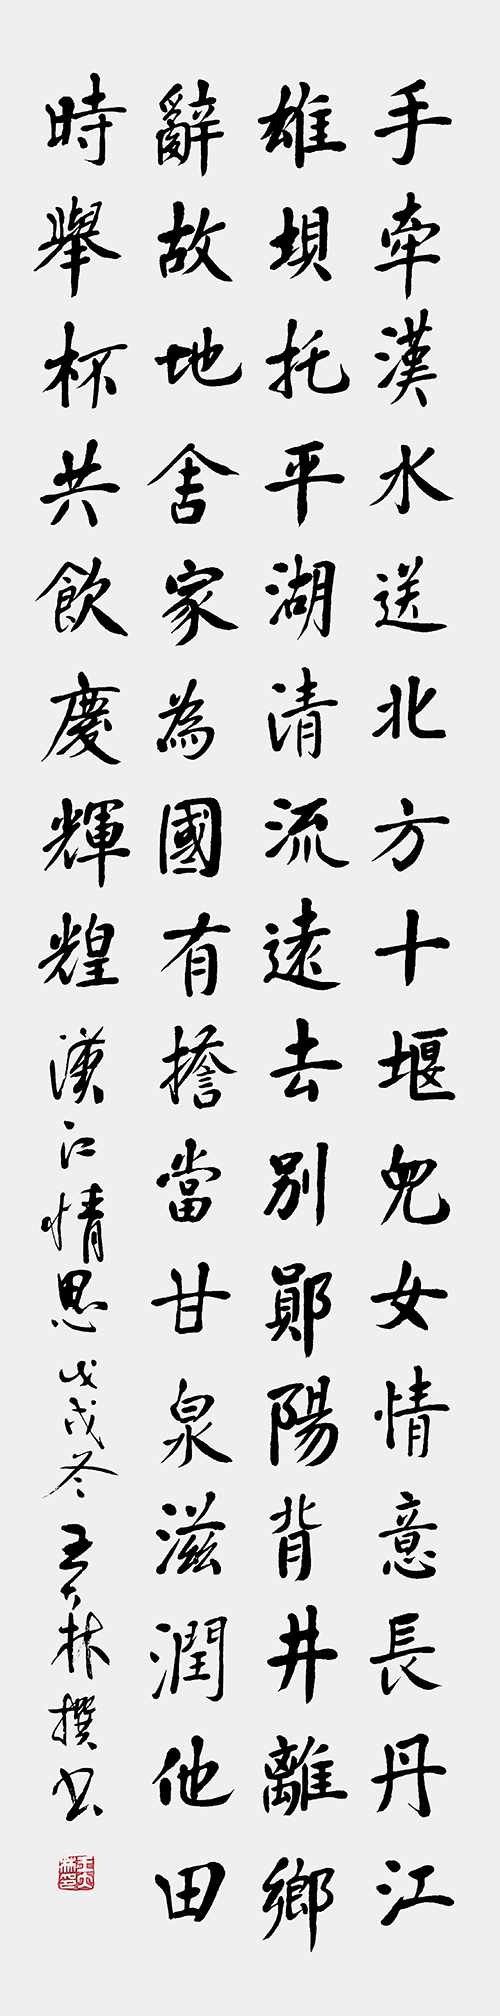 手牽漢水送北方十堰兒女情意長丹江
雄垻托平湖清流遠去別鄖陽背井離鄉
辭故地舍家為國有擔當甘泉滋潤他田
時舉杯共飲慶輝煌漢江情思戊戌冬王林撰書